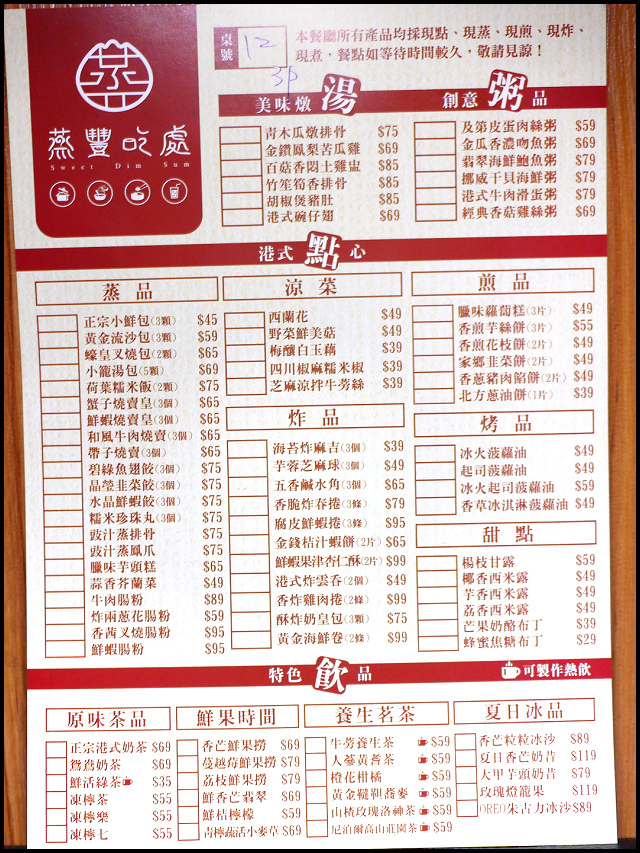 蒸豐吃處
Sweet Dim Sum
桌號 12
3P
本餐廳所有產品均採現點、現蒸、現煎、現炸、
現煮，餐點如等待時間較久，敬請見諒！
美味燉湯品
青木瓜燉排骨 $75
金鑽鳳梨苦瓜雞 $69
百菇香悶土雞盅 $85
竹笙筍香排骨 $85
胡椒煲豬肚 $85
港式碗仔翅 $69
創意粥品
及第皮蛋肉絲粥 $59
金瓜香濃吻魚粥 $69
翡翠海鮮鮑魚粥 $79
挪威干貝海鮮粥 $79
港式牛肉滑蛋粥 $79
經典香菇雞絲粥 $69
港式點心
蒸品
正宗小鮮包(3顆) $45
黃金流沙包(3顆) $59
蠔皇叉燒包(2顆) $65
小籠湯包(5顆) $69
荷葉糯米飯(2顆) $75
蟹子燒賣皇(3個) $65
鮮蝦燒賣皇(3個) $65
和風牛肉燒賣(3個) $65
帶子燒賣(3個) $65
碧綠魚翅餃(3個) $75
晶瑩韭菜餃(3個) $75
水晶鮮蝦餃(3個) $75
糯米珍珠丸(3個) $75
豉汁蒸排骨 $75
豉汁蒸鳳爪 $75
臘味芋頭糕 $65
蒜香芥蘭菜 $49
牛肉腸粉 $89
炸兩蔥花腸粉 $59
香茜叉燒腸粉 $95
鮮蝦腸粉 $95
涼菜
西蘭花 $49
野菜鮮美菇 $49
梅釀白玉藕 $39
四川椒麻糯米椒 $49
芝麻涼拌牛蒡絲 $39
炸品
海苔炸麻吉(3個) $39
芋蓉芝麻球(3個) $49
五香鹹水角(3個) $65
香脆炸春捲(3條) $79
腐皮鮮蝦捲(3條) $95
金錢桔汁蝦餅(2片) $65
鮮蝦果津杏仁酥(2片) $99
港式炸雲吞(2個) $49
香炸雞肉捲(2條) $99
酥炸奶皇包(3顆) $75
黃金海鮮卷(2條) $99
煎品
臘味蘿蔔糕(3片) $49
香煎芋絲餅(3片) $55
香煎花枝餅(2片) $49
家鄉韭菜餅(2片) $49
香蔥豬肉餡餅(2片) $49
北方蔥油餅(1片) $39
烤品
冰火菠蘿油 $49
起司菠蘿油 $49
冰火起司菠蘿油 $59
香草冰淇淋菠蘿油 $49
甜點
楊枝甘露 $59
椰香西米露 $49
芋香西米露 $49
荔香西米露 $49
芒果奶酪布丁 $39
蜂蜜焦糖布丁 $29
特色飲品
可製作熱飲
原味茶品
正宗港式奶茶 $69
鴛鴦奶茶 $69
鮮活綠茶 $35
凍檸茶 $55
凍檸樂 $55
凍檸七 $55
鮮果時間
香芒鮮果撈 $69
蔓越莓鮮果撈 $79
荔枝鮮果撈 $79
鮮香芒翡翠 $69
鮮桔檸檬 $59
青檸蔬活小麥草 $69
養生茗茶
牛蒡養生茶 $59
人蔘黃耆茶 $59
橙花柑橘 $59
黃金韃靼蕎麥 $59
山楂玫瑰洛神茶 $59
尼泊爾高山莊園茶 $59
夏日冰品
香芒粒粒冰沙 $89
夏日香芒奶昔 $119
大甲芋頭奶昔 $79
玫瑰燈籠果 $119
OREO朱古力冰沙 $89